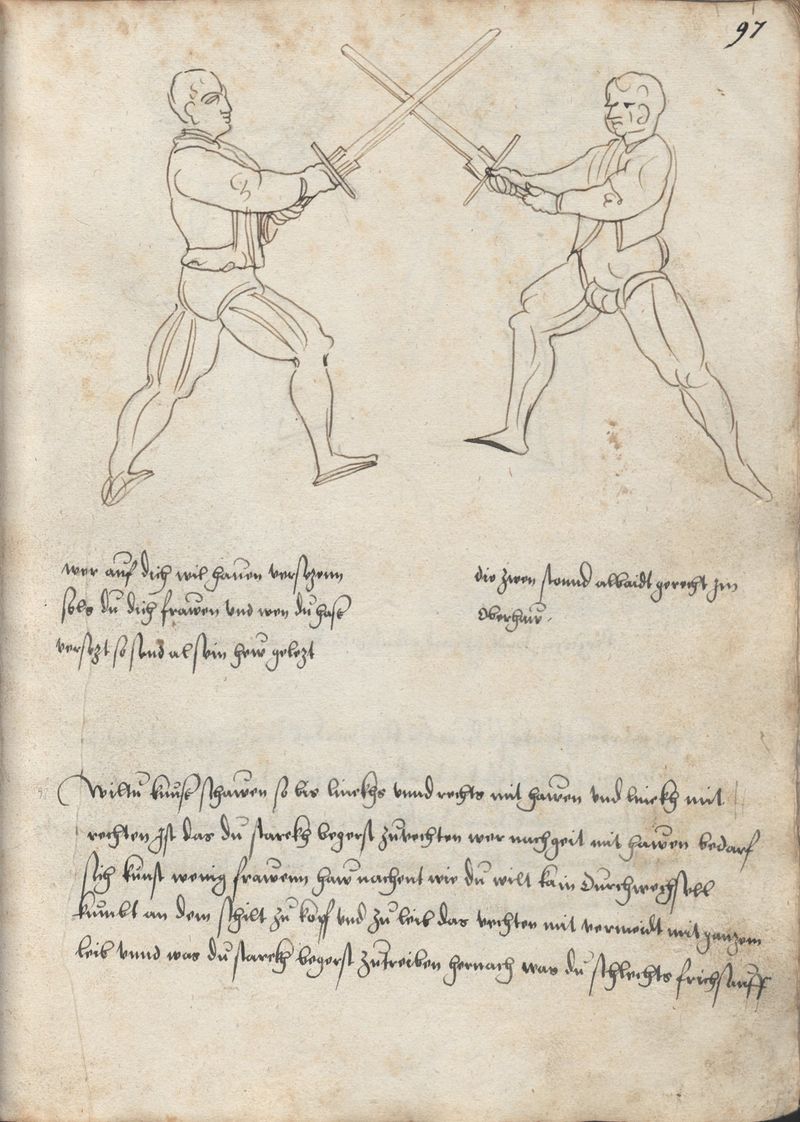 97
wer auf dich wil hauen versezenn
sols du dich frawen vnd wen du hast
versezt so send al sein hew gelezt
die zwen stonnd albaidt gerecht Im
Oberhaw.
Wiltu kunst schawen so bis linckhs vnnd rechts mit hawen vnd linckh mit
rechten Ist das du starckh begerst zu vechten wer nachgeit mit hawen bedarf
sich kunst wenig frawenn haw nachent wie du wilt kain Durchwechsell
kumbt an dem schilt zu kopf vnd zu leib das vechten mit vermeidt mit ganzem
leib vnnd was du starckh begerst zu treiben hernach was du schlechts frichs auff